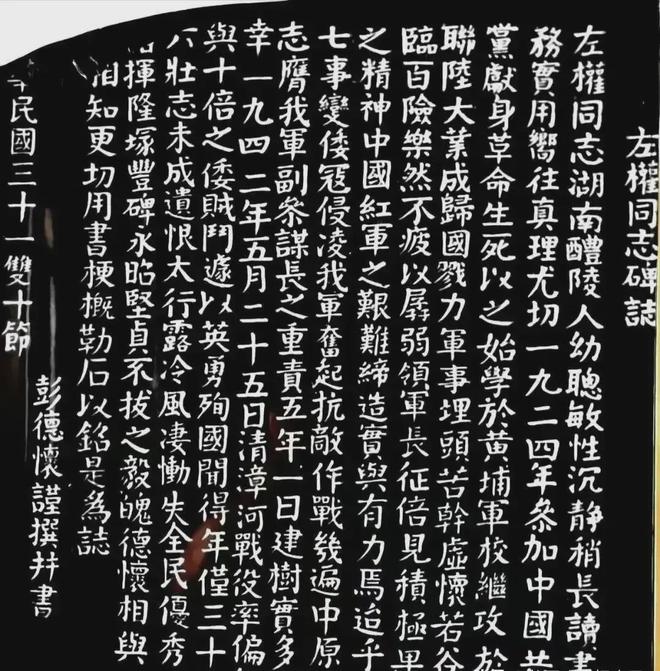 左權同志碑誌
左權同志湖南醴陵人幼聰敏性沉静稍長讀書
務實用嚮往真理尤切一九二四年參加中國共
黨獻身革命生死以之始學於黃埔軍校繼攻於
聯陸大業成歸國戮力軍事埋頭苦幹虛懷若谷
臨百險樂然不疲以孱弱領軍長征倍見積極果
之精神中國紅軍之艱難締造實與有力焉迨乎
七事變倭寇侵凌我軍奮起抗敵作戰幾遍中原
志膺我軍副參謀長之重責五年一日建樹實多
幸一九四二年五月二十五日清漳河戰役率偏
與十倍之倭賊鬥遽以英勇殉國聞得年僅三十
六壯志未成遺恨太行露冷風凄慟失全民優秀
指揮隆塚豐碑永昭堅貞不拔之毅魄德懷相與
相知更切用書梗概勒石以銘是為誌
民國三十一雙十節
彭德懷謹撰并書